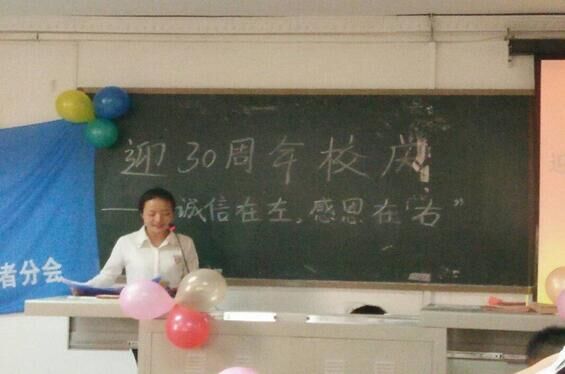 迎30周年校庆
——诚信在左,感恩在右”
者分会